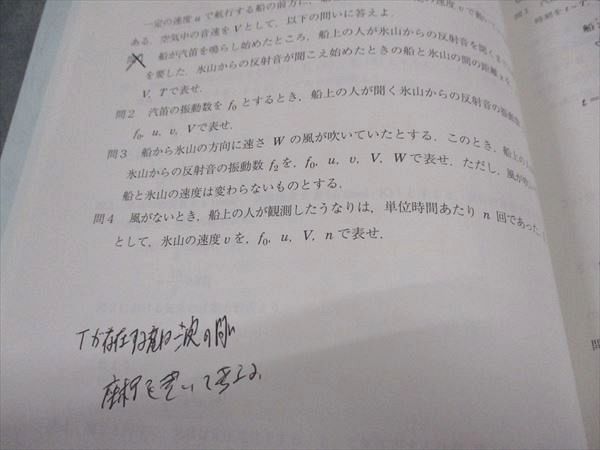 一定の速度 u で航行する船の前方に,
の速度 v で動い
ある. 空気中の音速を V として, 以下の問いに答えよ.
問1 船が汽笛を鳴らし始めたところ, 船上の人が氷山からの反射音を聞くま
を要した. 氷山からの反射音が聞こえ始めたときの船と氷山の間の距離 x を
V, T で表せ.
問2 汽笛の振動数を f₀ とするとき, 船上の人が聞く氷山からの反射音の振動数
f₀, u, v, V で表せ.
問3 船から氷山の方向に速さ W の風が吹いていたとする. このとき, 船上の
氷山からの反射音の振動数 f₂ を, f₀, u, v, V, W で表せ. ただし, 風が吹い
船と氷山の速度は変わらないものとする.
問4 風がないとき, 船上の人が観測したうなりは, 単位時間あたり n 回であった.
として, 氷山の速度 v を, f₀, u, V, n で表せ.
Tが存在する
座標を書いて考える
問1
時刻を t =
t =
問